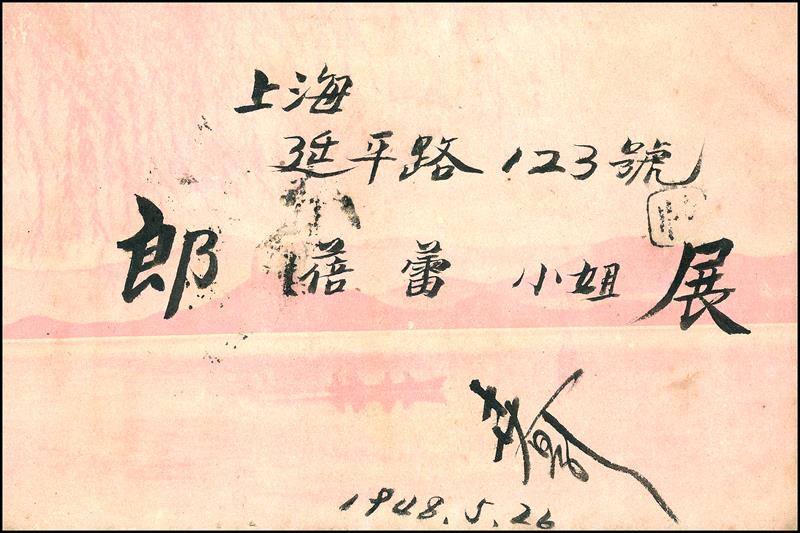 上海
延平路 123號
郎 蓓蕾 小姐 展
1948.5.26